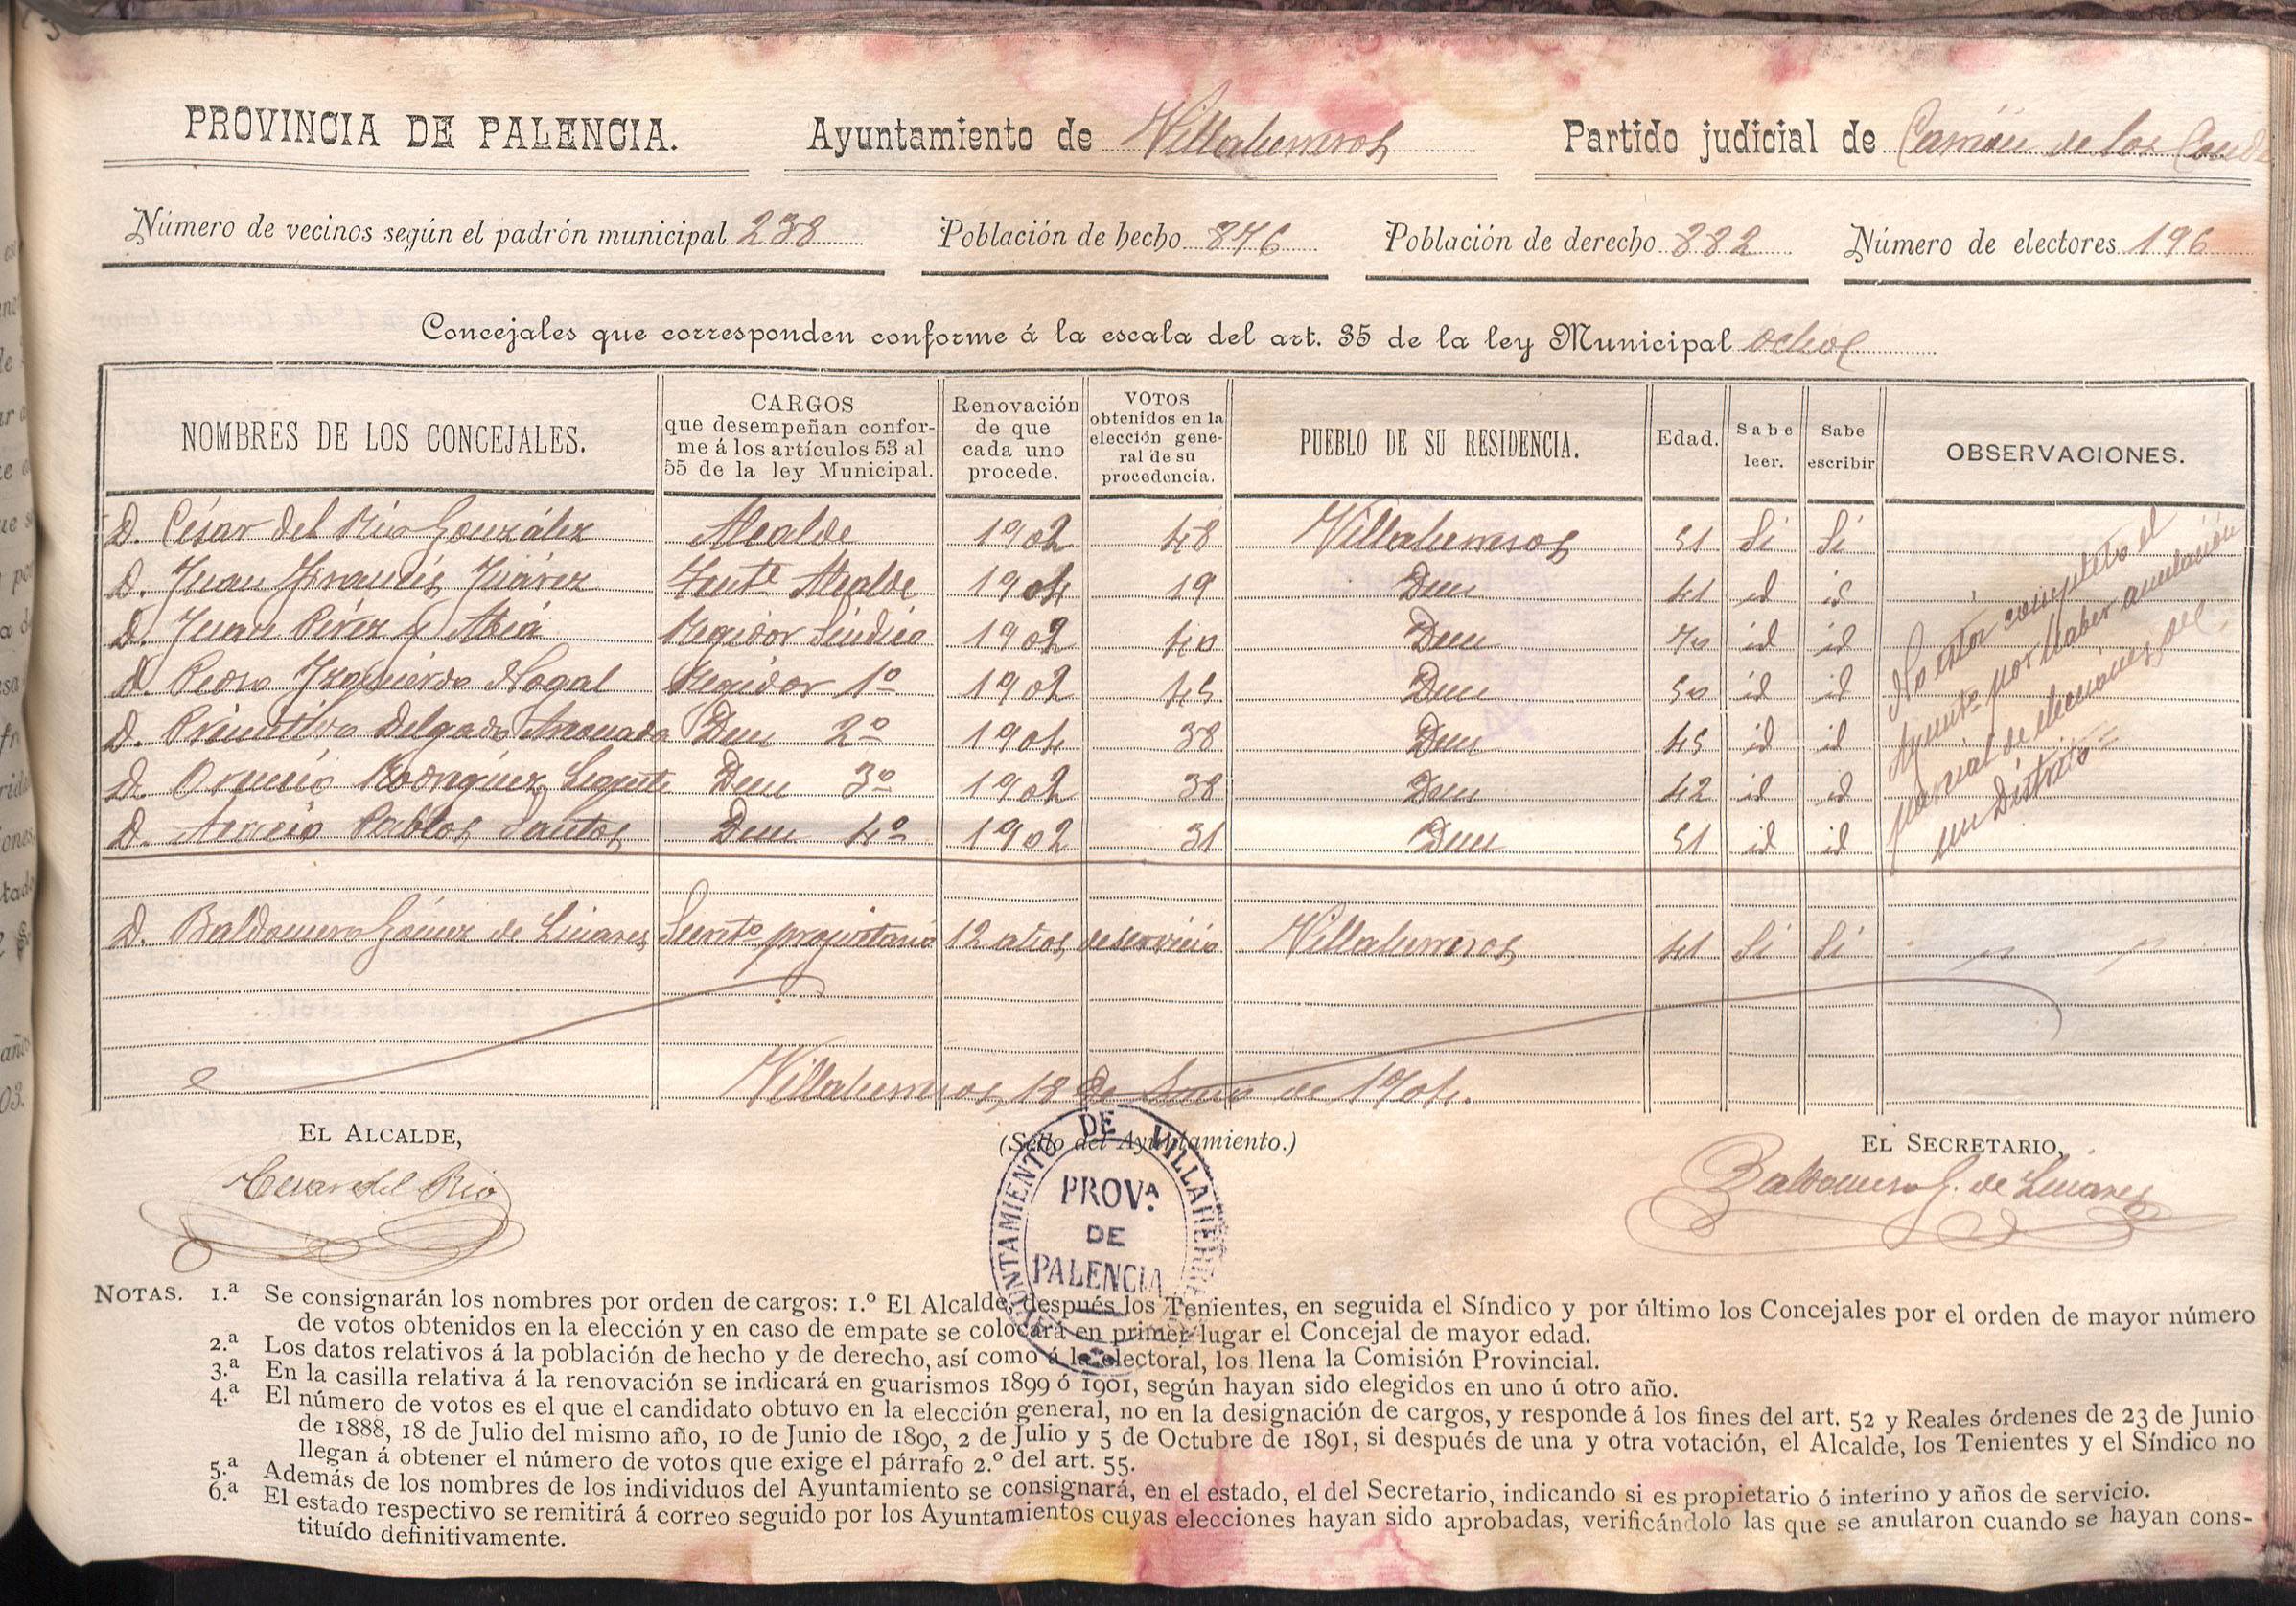 PROVINCIA DE PALENCIA. Ayuntamiento de Villaherreros Partido judicial de Carrión de los Condes
Número de vecinos según el padrón municipal 238 Población de hecho 876 Población de derecho 882 Número de electores 196
Concejales que corresponden conforme á la escala del art. 35 de la ley Municipal ocho
NOMBRES DE LOS CONCEJALES. CARGOS que desempeñan conforme á los artículos 53 al 55 de la ley Municipal. Renovación de que cada uno procede. VOTOS obtenidos en la elección general de su procedencia. PUEBLO DE SU RESIDENCIA. Edad. Sabe leer. Sabe escribir OBSERVACIONES.
D. César del Rio González Alcalde 1902 48 Villaherreros 51 Si Si
D. Juan Francés Juárez Tente Alcalde 1904 19 Dem 41 id id
D. Juan Pérez y Abia Regidor Sindico 1902 40 Dem 70 id id
D. Pedro Izquierdo Nogal Regidor 1º 1902 45 Dem 50 id id
D. Primitivo Delgado Dem 2º 1904 38 Dem 45 id id
D. Rodriguez Dem 3º 1902 38 Dem 42 id id
D. Acacio Pablos Santos Dem 4º 1902 31 Dem 51 id id
No está completo el
Ayunto por haber anulación
parcial de elecciones del
un Distrito
D. Baldomero Gómez de Linares Secreto propietario 12 años de servicio Villaherreros 41 Si Si " "
Villaherreros, 18 de de 1904.
EL ALCALDE, (Sello del Ayuntamiento.) EL SECRETARIO,
Cesar del Rio
Baldomero G. de Linares
AYUNTAMIENTO DE VILLAHERREROS
PROVA.
DE
PALENCIA
NOTAS. 1.ª Se consignarán los nombres por orden de cargos: 1.º El Alcalde, después los Tenientes, en seguida el Síndico y por último los Concejales por el orden de mayor número
de votos obtenidos en la elección y en caso de empate se colocará en primer lugar el Concejal de mayor edad.
2.ª Los datos relativos á la población de hecho y de derecho, así como á la electoral, los llena la Comisión Provincial.
3.ª En la casilla relativa á la renovación se indicará en guarismos 1899 ó 1901, según hayan sido elegidos en uno ú otro año.
4.ª El número de votos es el que el candidato obtuvo en la elección general, no en la designación de cargos, y responde á los fines del art. 52 y Reales órdenes de 23 de Junio
de 1888, 18 de Julio del mismo año, 10 de Junio de 1890, 2 de Julio y 5 de Octubre de 1891, si después de una y otra votación, el Alcalde, los Tenientes y el Síndico no
llegan á obtener el número de votos que exige el párrafo 2.º del art. 55.
5.ª Además de los nombres de los individuos del Ayuntamiento se consignará, en el estado, el del Secretario, indicando si es propietario ó interino y años de servicio.
6.ª El estado respectivo se remitirá á correo seguido por los Ayuntamientos cuyas elecciones hayan sido aprobadas, verificándolo las que se anularon cuando se hayan cons-
tituído definitivamente.